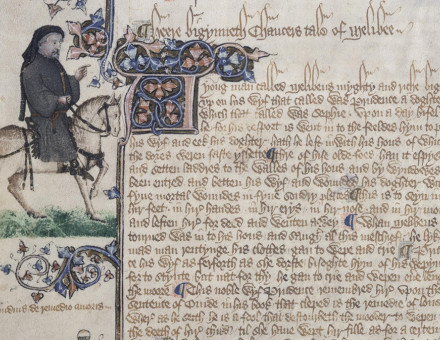 Heere bigynneth Chaucers tale of Melibee
yong man called Melibeus myghty and riche
vp on his wyf that called was Prudence a doghter
Which that called was Sophie Vpon a day
he for his desport is went in to the feeldes hym to
his wyf and eek his doghter hath he left in with his hous of which
the dores weren faste yshette Thre of his olde foes han it espye
and setten laddres to the walles of his hous and by wyndowes
been entred and betten his wyf and wounded his doghter
fyue mortal woundes in fyue sondry places This is to seyn
hir feet in hir handes in hir erys in hir nose and in hir
and leften hir for deed and wenten awey Whan Melibeus
tourned was in to his hous and saugh al this meschief he
mad man rentynge his clothes gan to wepe and crie
his wyf as ferforth as she dorste bisoghte hym of his
for to stynte but nat for thy he gan to crie and wepen euere
the moore This noble wyf Prudence remembred hir vpon the
sentence of Ouide in his book that cleped is the remedie of loue
Wher as he seith he is a fool that destourbeth the mooder to wepen
the deeth of hir child til she haue wept hir fille as for a certein
uidius de remedio amoris